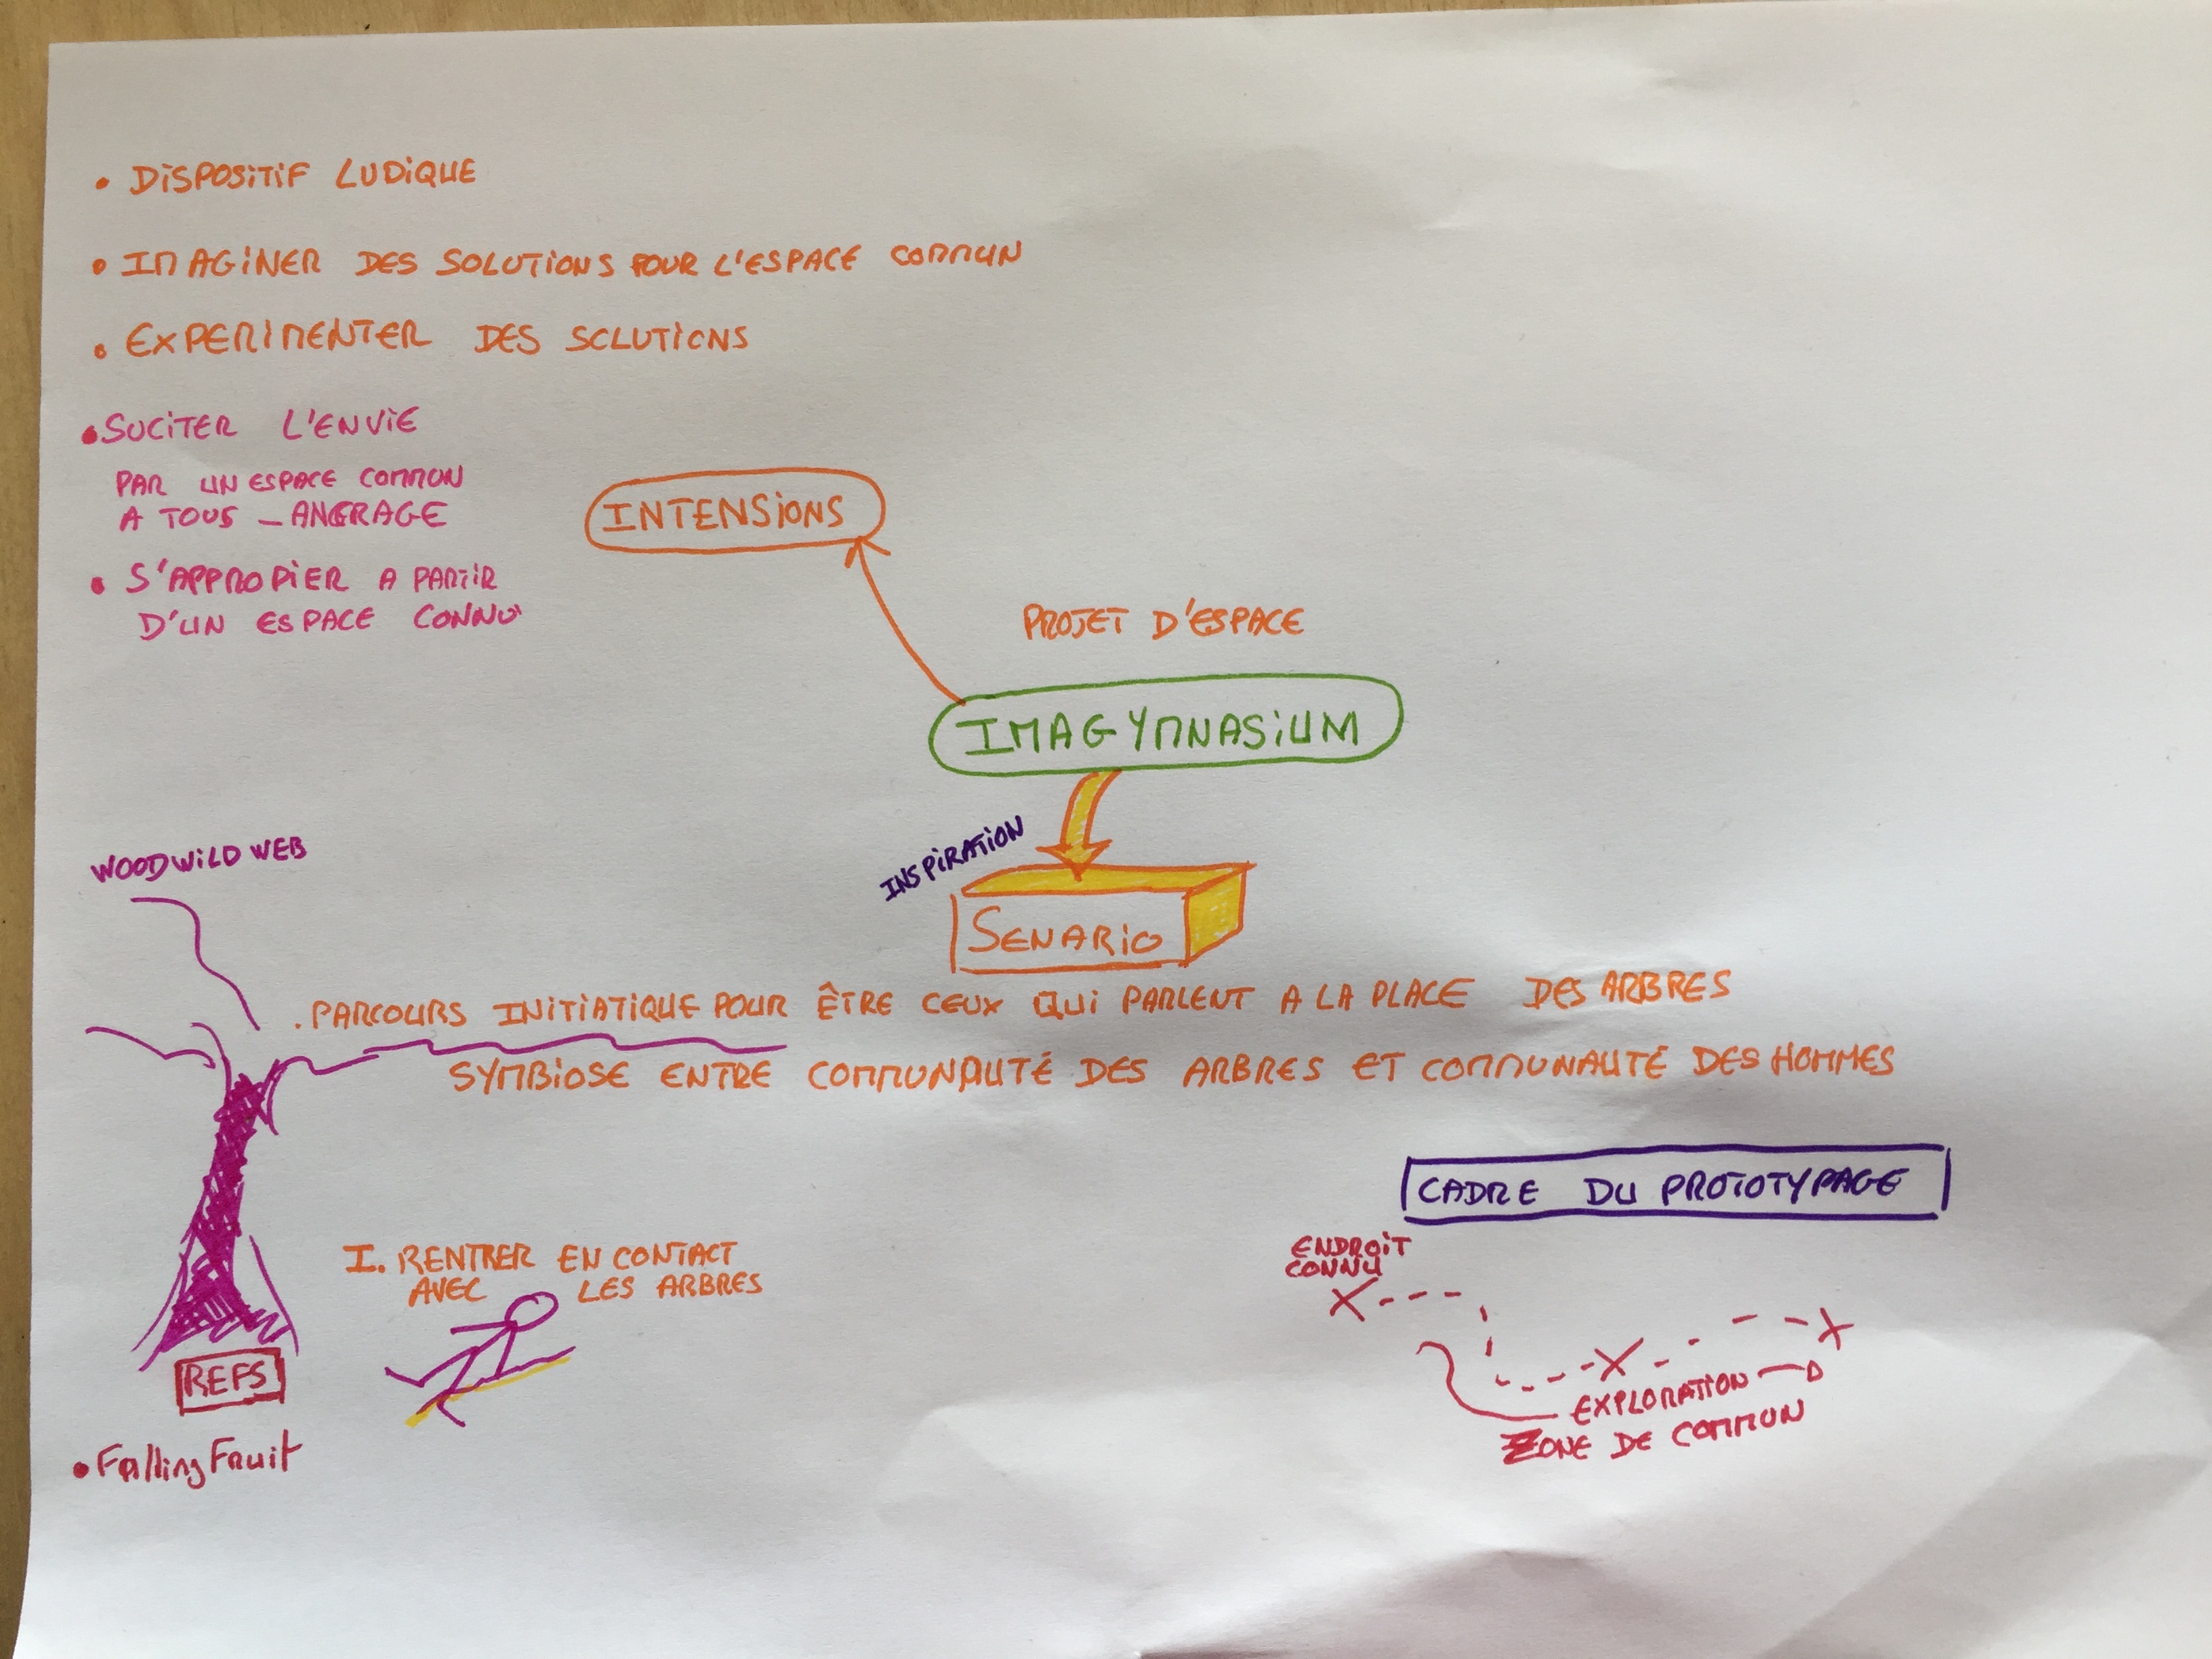 • DISPOSITIF LUDIQUE
• IMAGINER DES SOLUTIONS POUR L'ESPACE COMMUN
• EXPERIMENTER DES SOLUTIONS
• SUCITER L'ENVIE
PAR UN ESPACE COMMUN
A TOUS _ ANCRAGE
• S'APPROPIER A PARTIR
D'UN ESPACE CONNU
INTENSIONS
PROJET D'ESPACE
IMAGYMNASIUM
INSPIRATION
SENARIO
WOODWILD WEB
. PARCOURS INITIATIQUE POUR ÊTRE CEUX QUI PARLENT A LA PLACE DES ARBRES
SYMBIOSE ENTRE COMMUNAUTÉ DES ARBRES ET COMMUNAUTÉ DES HOMMES
I. RENTRER EN CONTACT
AVEC LES ARBRES
REFS
• Falling Fruit
CADRE DU PROTOTYPAGE
ENDROIT
CONNU
EXPLORATION
ZONE DE COMMUN